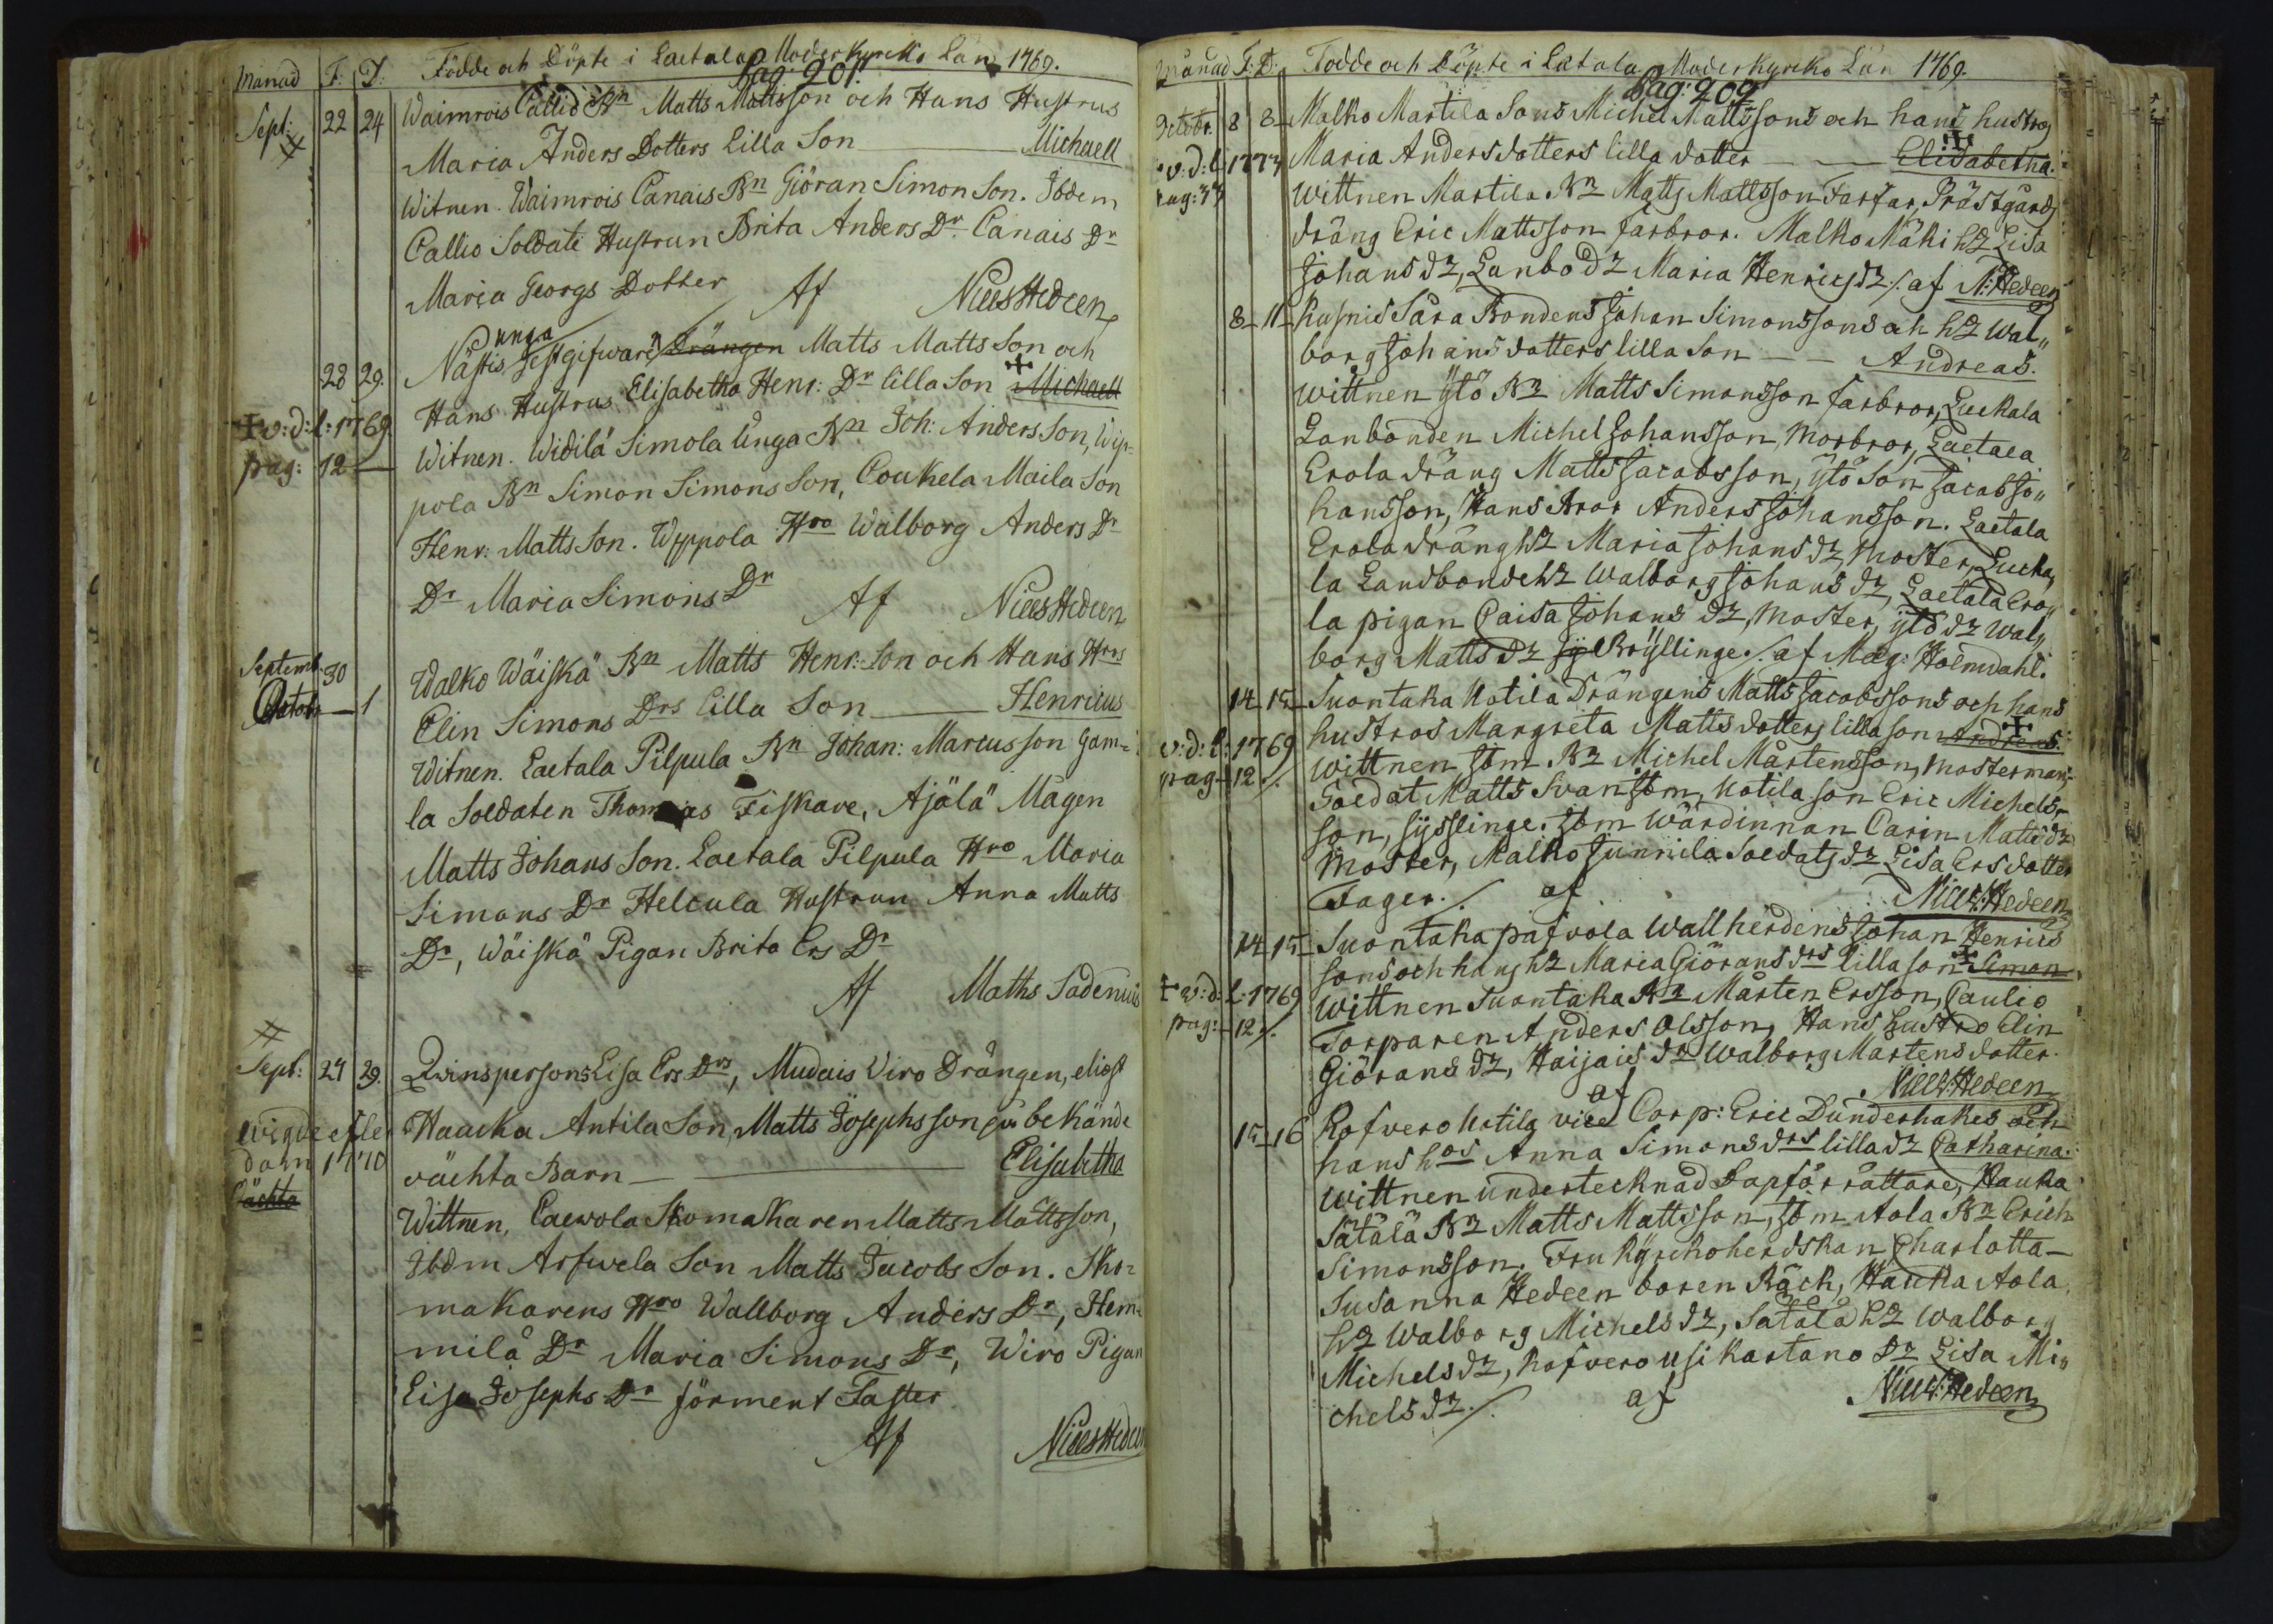 Månad F: D: Födde och Döpte i Laetala Moderkyrcko Län 1769.
Pag: 201.
Sept: 22 24 Waimrois Callio Bn Matts Mattsson och Hans Hustrus
Maria Anders Dotters Lilla Son Michaell
Witnen. Waimrois Canais Bn Giöran Simon Son. Ibdem
Callio Soldate Hustrun Brita Anders Dr Canais Dr
Maria Georgs Dotter Af Niels Hedeen
unga
28 29. Nästis gestgifware Drängen Matts Matts Son och
Hans Hustrus Elisabetha Henr: Dr lilla Son Michaell
v: d: l: 1769
pag: 12
Witnen. Widilä Simola Unga Bn Joh: Anders Son, Wip-
pola Bn Simon Simons Son, Coukela Maila Son
Henr: Matts Son. Wippola Hro Walborg Anders Dr
Dr Maria Simons Dr Af Niels Hedeen
Septemb. 30
Octob. 1 Walko Wäiskä Bn Matts Henr: Son och Hans Hros
Elin Simons Drs lilla Son Henricus
Witnen. Laetala Pilpula Bn Johan: Marcusson Gam-
la Soldaten Thomas Fiskare, Ajälä Mågen
Matts Johans Son. Laetala Pilpula Hro Maria
Simons Dr Helcula Hustrun Anna Matts
Dr, Wäiskä Pigan Brita Ers Dr
Af Maths Sadenius
Sept: 27 29. Qvinspersons Lisa Ers Drs, Mudais Viro Drängen, eliest
Haucka Antila Son, Matts Josephsson bekände
wigde efter
dorn 1770
oächta Barn Elisabetha
oächta
Wittnen, Caewola Skomakaren Matts Mattsson,
Ibdm Arfwela Son Matts Jacobs Son. Sko-
makarens Hro Wallborg Anders Dr, Hem-
milä Dr Maria Simons Dr, Wiro Pigan
Lisa Josephs Dr förment Faster
Af Niels Hedeen
Månad F: D: Födde och Döpte i Latala Moderkyrcko Län 1769.
Pag: 202
Octobr. 8 8 Malko Martila Sons Michel Mattssons och hans hustrog
v: d: l: 1773 Maria Andersdotters lilla dotter Elisabetha.
pag: 33
Wittnen Martila Bn Matts Mattsson Farfar, Prästgårds
dräng Eric Mattsson farbror. Malko Mäki hz Lisa
Johans dz, Lanbo dz Maria Henrics dz /. af N: Hedeen
8 11 Kusnis Sara Bondens Johan Simonssons och hz Wal-
borg Johans dotters lilla Son Andreas.
Wittnen Ÿlö Bn Matts Simonsson farbror, Luckala
Lanbonden Michel Johansson, Morbror, Laetala
Erola dräng Matts Jacobsson, Ÿlö Son Jacob Jo-
hansson, Hans Bror Anders Johansson. Laetala
Erola dräng hz Maria Johans dz, Moster, Lucka-
la Landbonde hz Walborg Johans dz, Laetala Ero-
la pigan Caisa Johans dz, Moster, Ÿlö dz Wal-
borg Matts dz Bryllinge /. af Mag: Holmdahl.
14 15 Suontaka Uotila Drängens Matts Jacobssons och hans
hustros Margreta Matts dotters lilla son Andreas.
v: d: l: 1769
pag. 12 /.
Wittnen Ibm Bn Michel Mårtensson, Mosterman,
Soldat Matts Svan Ibm, Uotila son Eric Michels-
son, syslinge. Ibm Wärdinnan Carin Matts dz
Moster, Malko Junnila Soldats dz Lisa Ers dotter
Fager. /. af Niels: Hedeen
14 15 Suontaka Pafvola Wallherdens Johan Henrics
sons och hans hz Maria Giörans drs lilla son Simon
v: d: l: 1769
pag: 12 /.
Wittnen Suontaka Bn Mårten Ersson, Caulio
Torparen Anders Olsson, Hans hustro Elin
Giörans dz, Haijais dz Walborg Mårtens dotter.
af Niels: Hedeen
15 16 Rofvero Uotila vice Corp: Eric Dunderhakes och
hans hos Anna Simons drs lilla dz Catharina.
Wittnen undertecknad Dopförrättare, Hauka
Sätälä Bn Matts Mattsson, Ibm Aola Bn Erich
Simonsson. Fru kyrckoherdskan Charlotta
Susanna Hedeen boren Bäck, Haucka Aola
hz Walborg Michels dz, Sätälä hz Walborg
Michels dz, Rofvero Usikartano Dz Lisa Mi-
chels dz /. af Niels: Hedeen